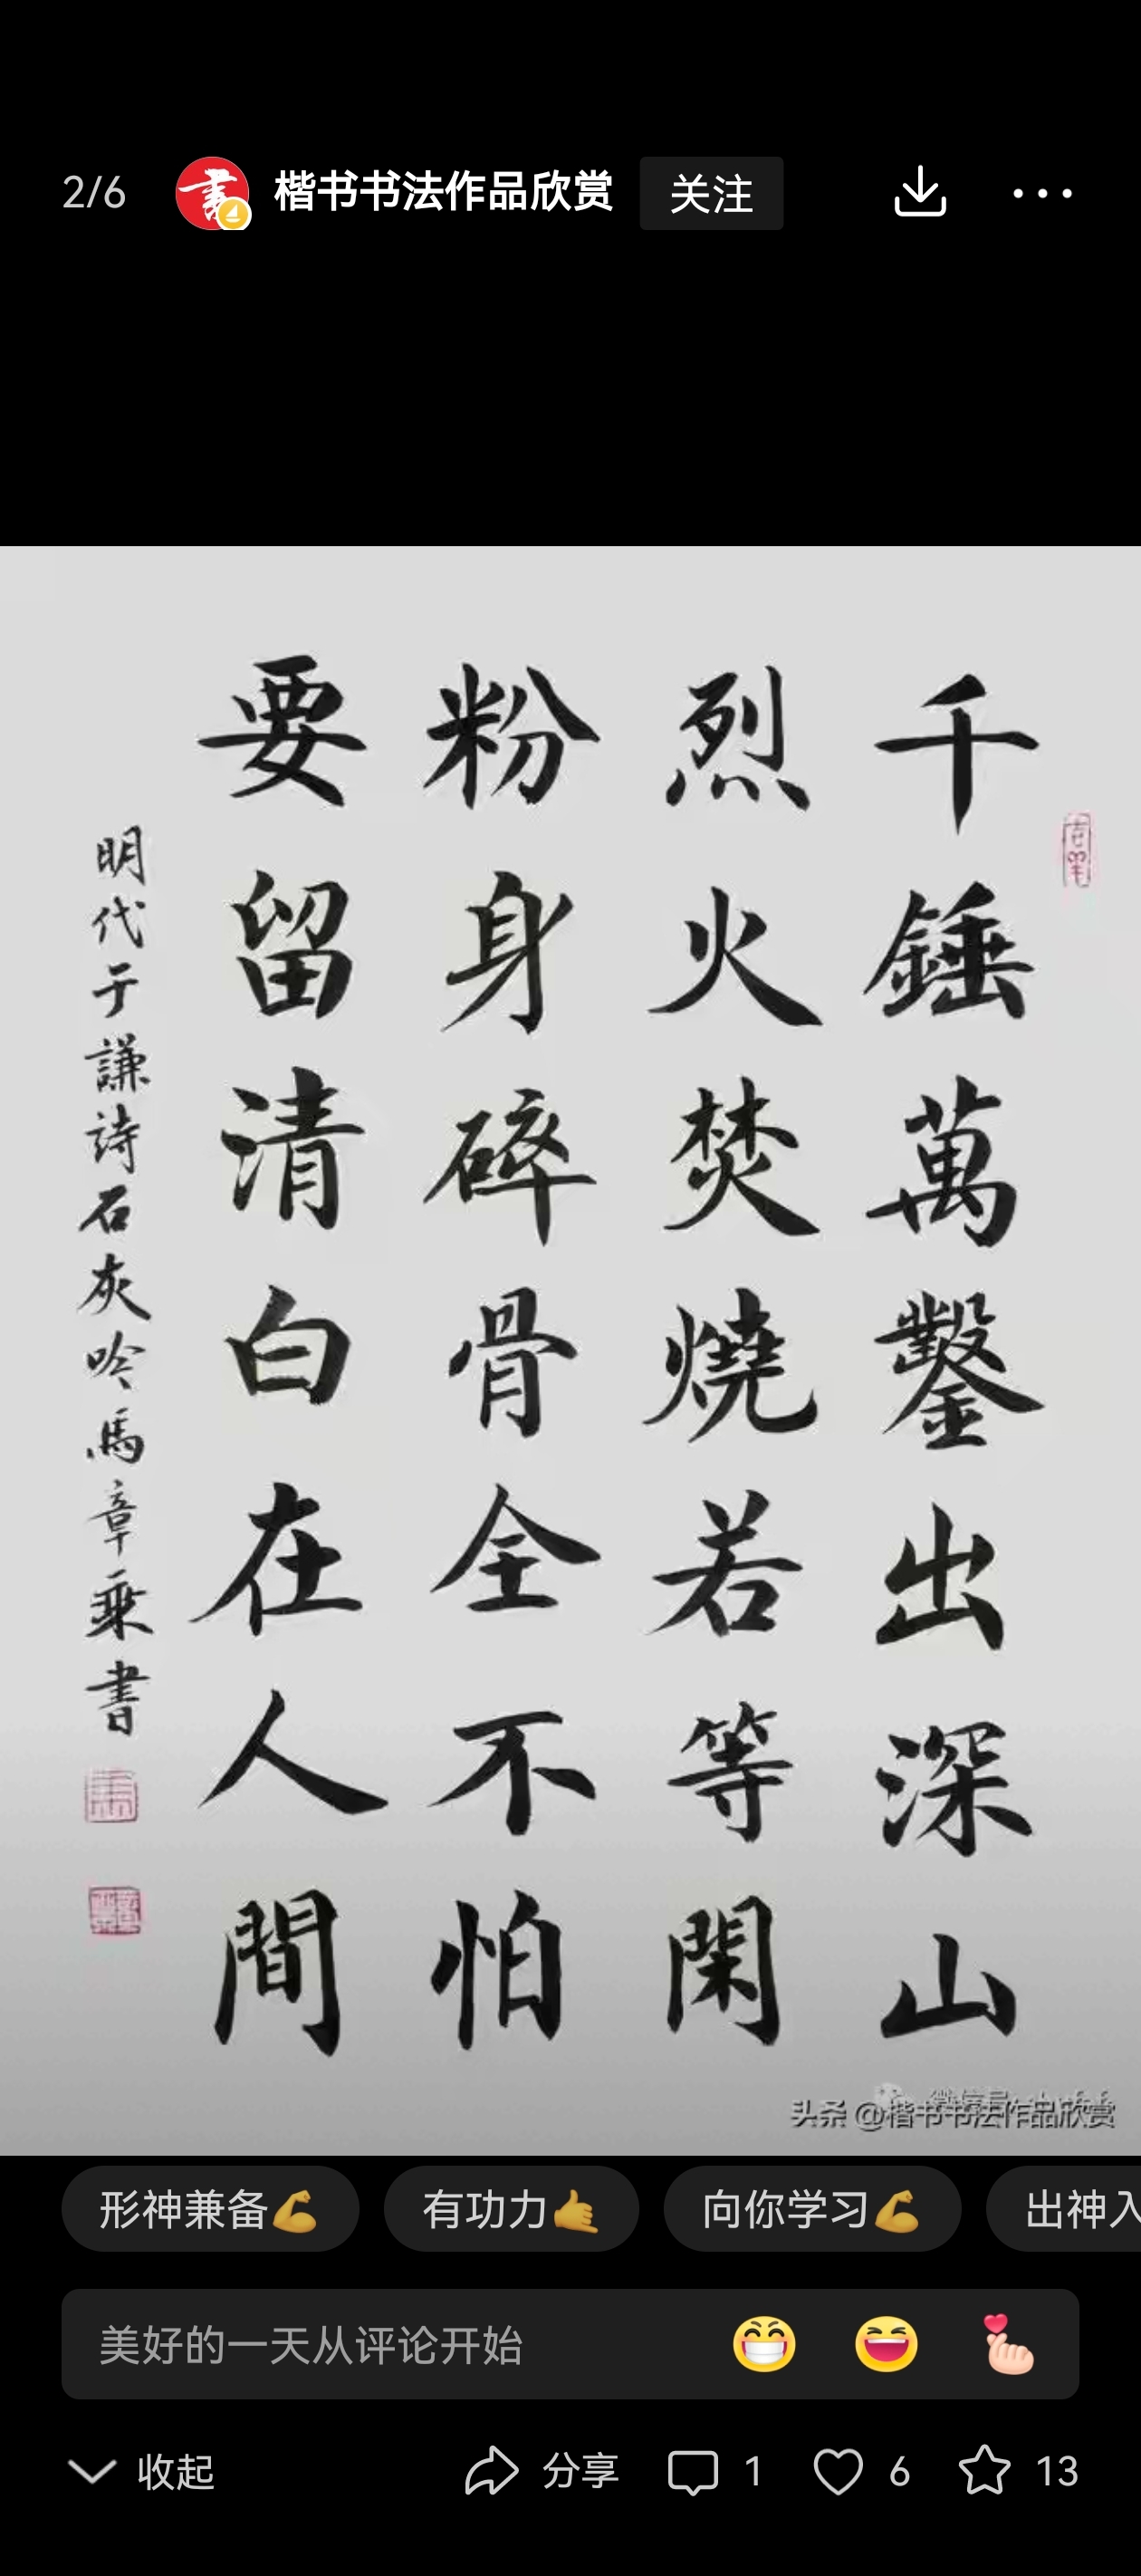 2/6 楷书书法作品欣赏 关注
千錘萬鑿出深山
烈火焚燒若等閑
粉身碎骨全不怕
要留清白在人間
明代于謙詩石灰吟馬章乘書
头条 @楷书书法作品欣赏
形神兼备💪 有功力🤙 向你学习💪 出神入
美好的一天从评论开始
收起 分享 1 6 13